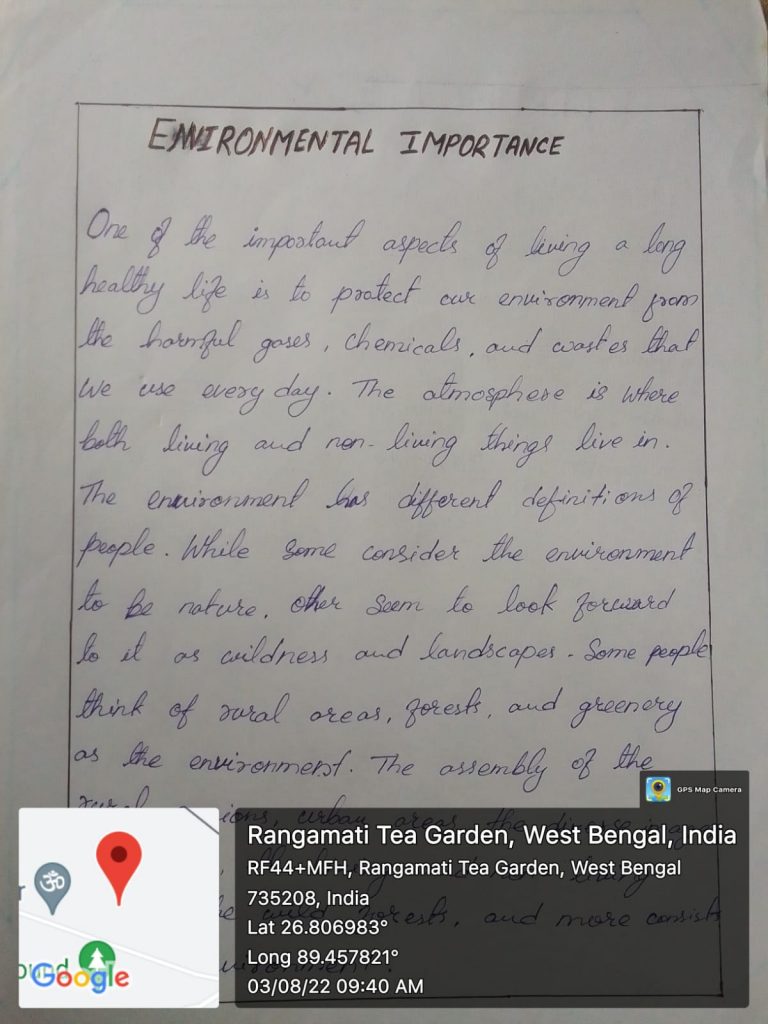 ENVIRONMENTAL IMPORTANCE
One of the important aspects of living a long
healthy life is to protect our environment from
the harmful gases, chemicals, and wastes that
we use every day. The atmosphere is where
both living and non-living things live in.
The environment has different definitions of
people. While some consider the environment
to be nature, other seem to look forward
to it as wildness and landscapes. Some people
think of rural areas, forests, and greenery
as the environment. The assembly of the
rural urban areas, the
living
wild forests, and more consists
GPS Map Camera
Rangamati Tea Garden, West Bengal, India
RF44+MFH, Rangamati Tea Garden, West Bengal
735208, India
Lat 26.806983°
Long 89.457821°
03/08/22 09:40 AM
ॐ
Google